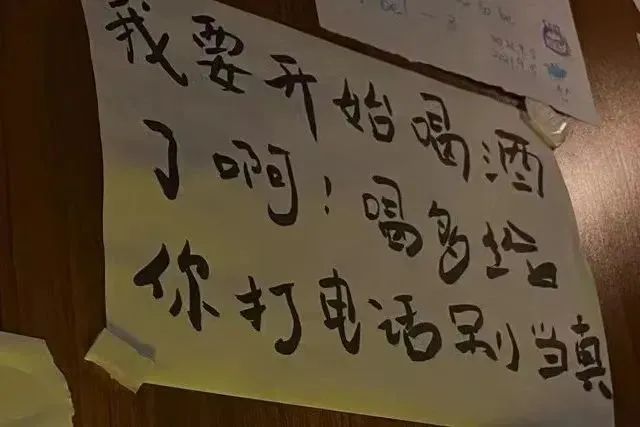 我要开始喝酒
了啊!喝多给
你打电话别当真